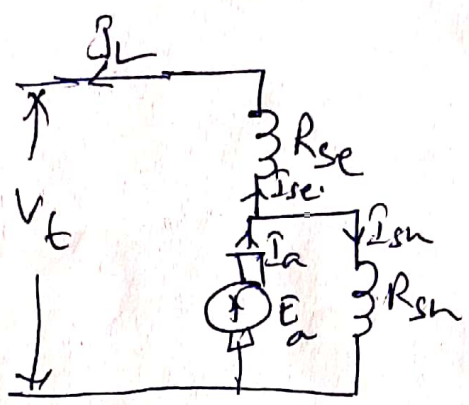 I_L
R_se
I_se.
V_t
I_a
I_sh
E_a
R_sh